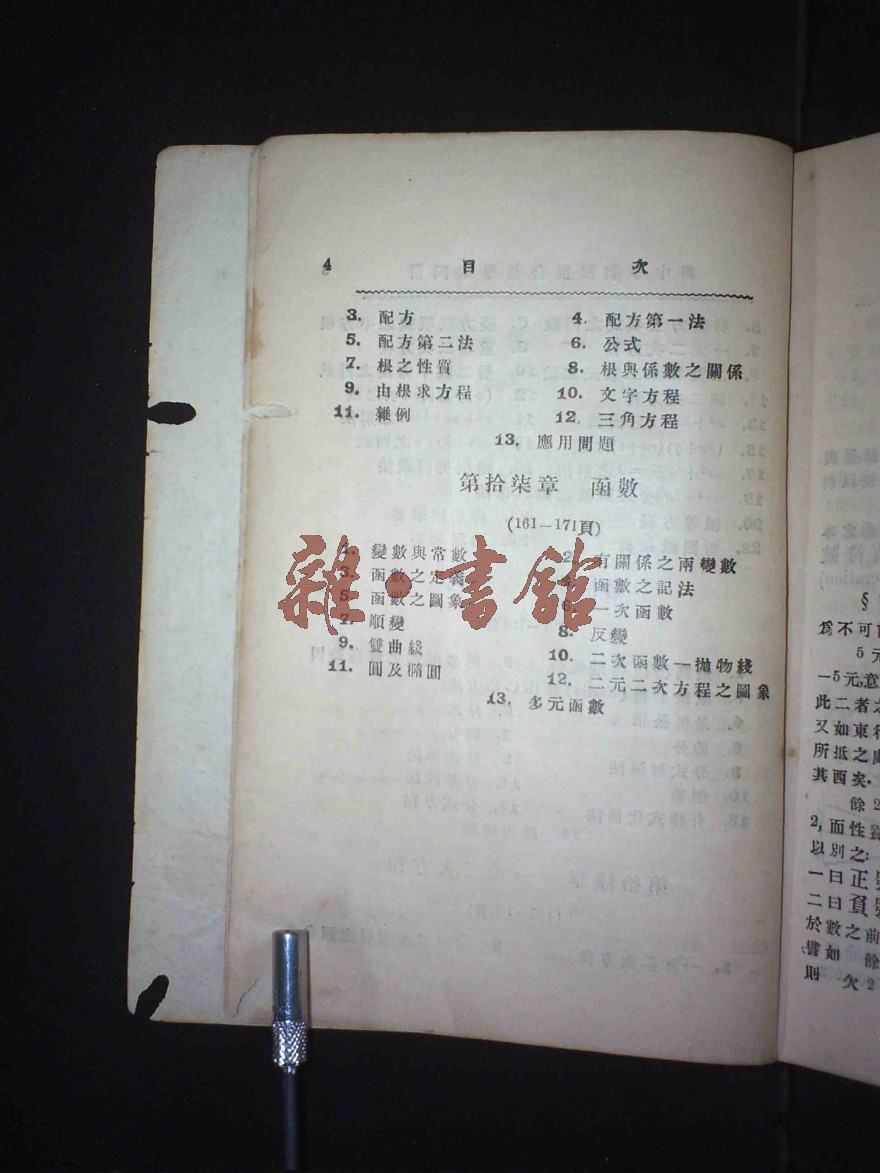 4 目 次
3. 配方 4. 配方第一法
5. 配方第二法 6. 公式
7. 根之性質 8. 根與係數之關係
9. 由根求方程 10. 文字方程
11. 雜例 12. 三角方程
13. 應用問題
第拾柒章 函數
(161—171頁)
1. 變數與常數 2. 有關係之兩變數
3. 函數之定義 4. 函數之記法
5. 函數之圖象 6. 一次函數
7. 順變 8. 反變
9. 雙曲綫 10. 二次函數—拋物綫
11. 圓及橢圓 12. 二元二次方程之圖象
13. 多元函數
雜·書館
§
爲不可
5元
—5元,意
此二者之
又如東行
所抵之處
其西矣.
餘2
2,而性
以別之:
一曰正
二曰負
於數之前
譬如 餘
則 欠2